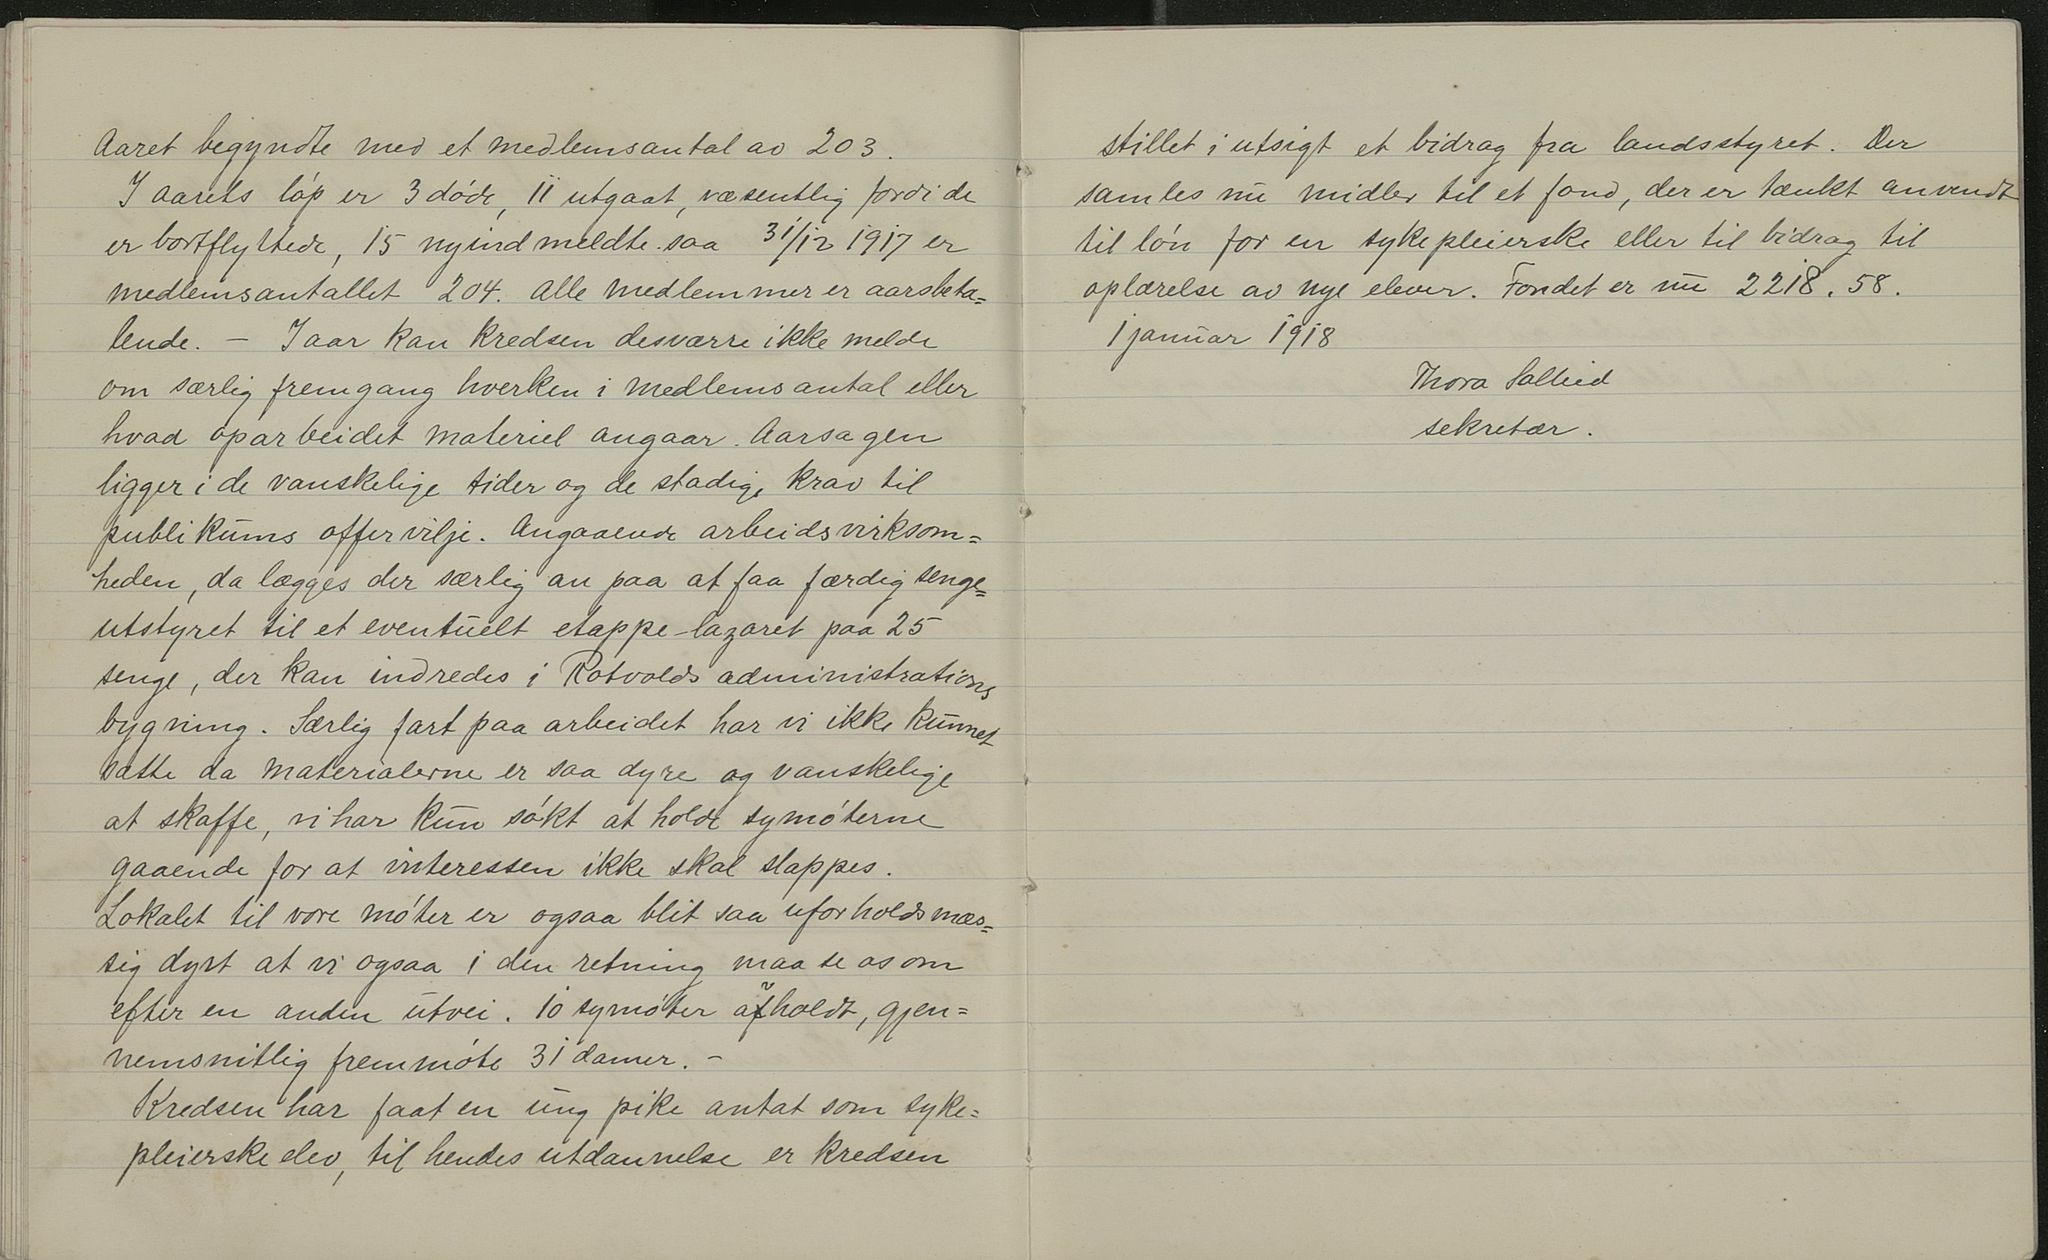 Aaret begyndte med et medlemsantal av 203.
I aarets løp er 3 døde, 11 utgaat, væsentlig fordi de
er bortflyttede, 15 nyindmeldte. saa 31/12 1917 er
medlemsantallet 204. Alle medlemmer er aarsbeta=
lende. – I aar kan kredsen desværre ikke melde
om særlig fremgang hverken i medlemsantal eller
hvad oparbeidet materiel angaar. Aarsagen
ligger i de vanskelige tider og de stadige krav til
publikums offervilje. Angaaende arbeidsvirksom=
heden, da lægges der særlig an paa at faa færdig senge=
utstyret til et eventuelt etappe-lazaret paa 25
senge, der kan indredes i Rotvolds administrations
bygning. Særlig fart paa arbeidet har vi ikke kunnet
sætte da materialerne er saa dyre og vanskelige
at skaffe, vi har kun søkt at holde symøterne
gaaende for at interessen ikke skal slappes.
Lokalet til vore møter er ogsaa blit saa uforholdsmæs=
sig dyrt at vi ogsaa i den retning maa se os om
efter en anden utvei. 10 symøter avholdt, gjen=
nemsnitlig fremmøte 31 damer. –
Kredsen har faat en ung pike antat som syke=
pleierske elev, til hendes utdannelse er kredsen
stillet i utsigt et bidrag fra landsstyret. Der
samles nu midler til et fond, der er tænkt anvendt
til løn for en sykepleierske eller til bidrag til
oplærelse av nye elever. Fondet er nu 2218.58.
1 januar 1918
Thora
sekretær.